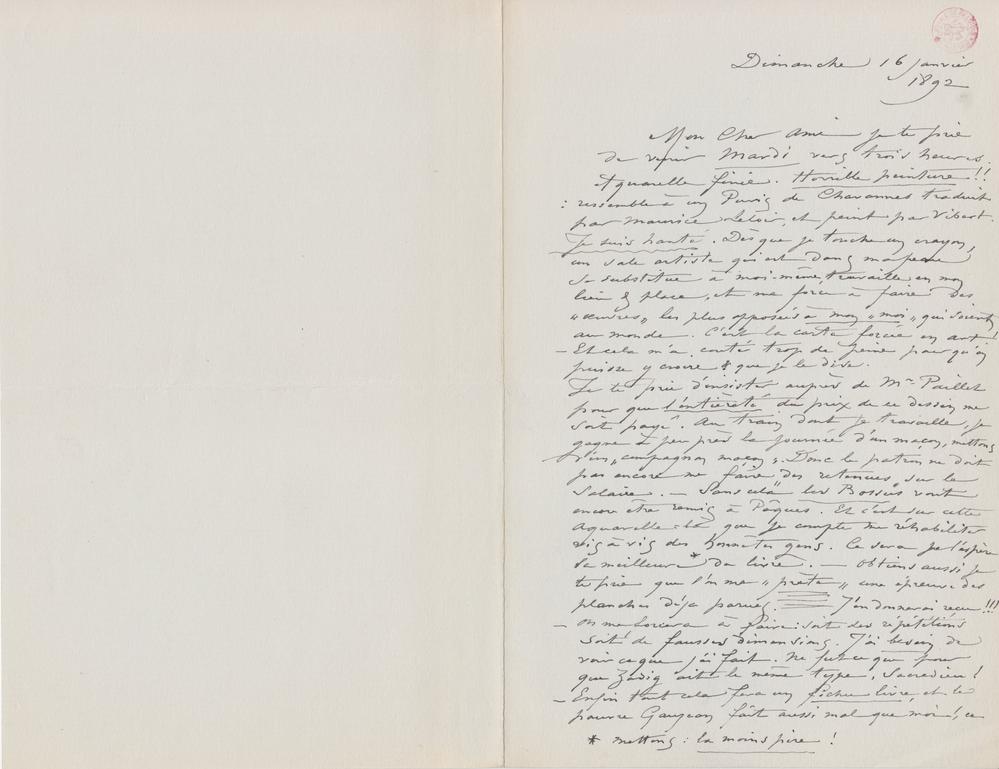 Dimanche 16 janvier
1892
Mon Cher ami je te prie
de venir Mardi vers trois heures.
Aquarelle finie. Horrible peinture!!
: ressemble à un Puvis de Chavannes traduit
par Maurice Leloir, et peint par Vibert.
Je suis hanté. Dès que je touche un crayon,
un sale artiste qui est dans ma peau
se substitue à moi-même, travaille en mon
lieu & place, et me force à faire des
"œuvres" les plus opposées à mon "moi" qui soient
au monde. C'est la carte forcée en art!
— Et cela m'a coûté trop de peine pour qu'on
puisse y croire & que je le dise.
Je te prie d'insister auprès de Mr Paillet
pour que l'entièreté du prix de ce dessin me
soit payé. Au train dont je travaille, je
gagne à peu près la journée d'un maçon, mettons
d'un "compagnon maçon". Donc le patron ne doit
pas encore me faire des "retenues" sur le
salaire. — Sans cela les Bossus vont
encore être remis à Pâques. Et c'est sur cette
aquarelle-là que je compte me réhabiliter
vis à vis des honnêtes gens. Ce sera je l'espère
la meilleure * du livre. — Obtiens aussi je
te prie que l'on me "prête" une épreuve des
planches déjà parues. J'en donnerai reçu!!!
— On me forcera à faire: soit des répétitions
soit de fausses dimensions. J'ai besoin de
voir ce que j'ai fait. Ne fut-ce que pour
que Zadig ait le même type, sacredieu!
— Enfin tout cela fera un fichu livre, et le
pauvre Gaujean fait aussi mal que moi!, ce
* mettons: la moins pire!